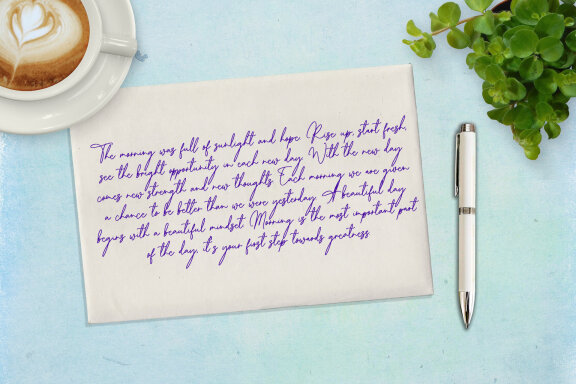 The morning was full of sunlight and hope. Rise up, start fresh,
see the bright opportunity in each new day. With the new day
comes new strength and new thoughts. Each morning we are given
a chance to be better than we were yesterday. A beautiful day
begins with a beautiful mindset. Morning is the most important part
of the day, it's your first step towards greatness.